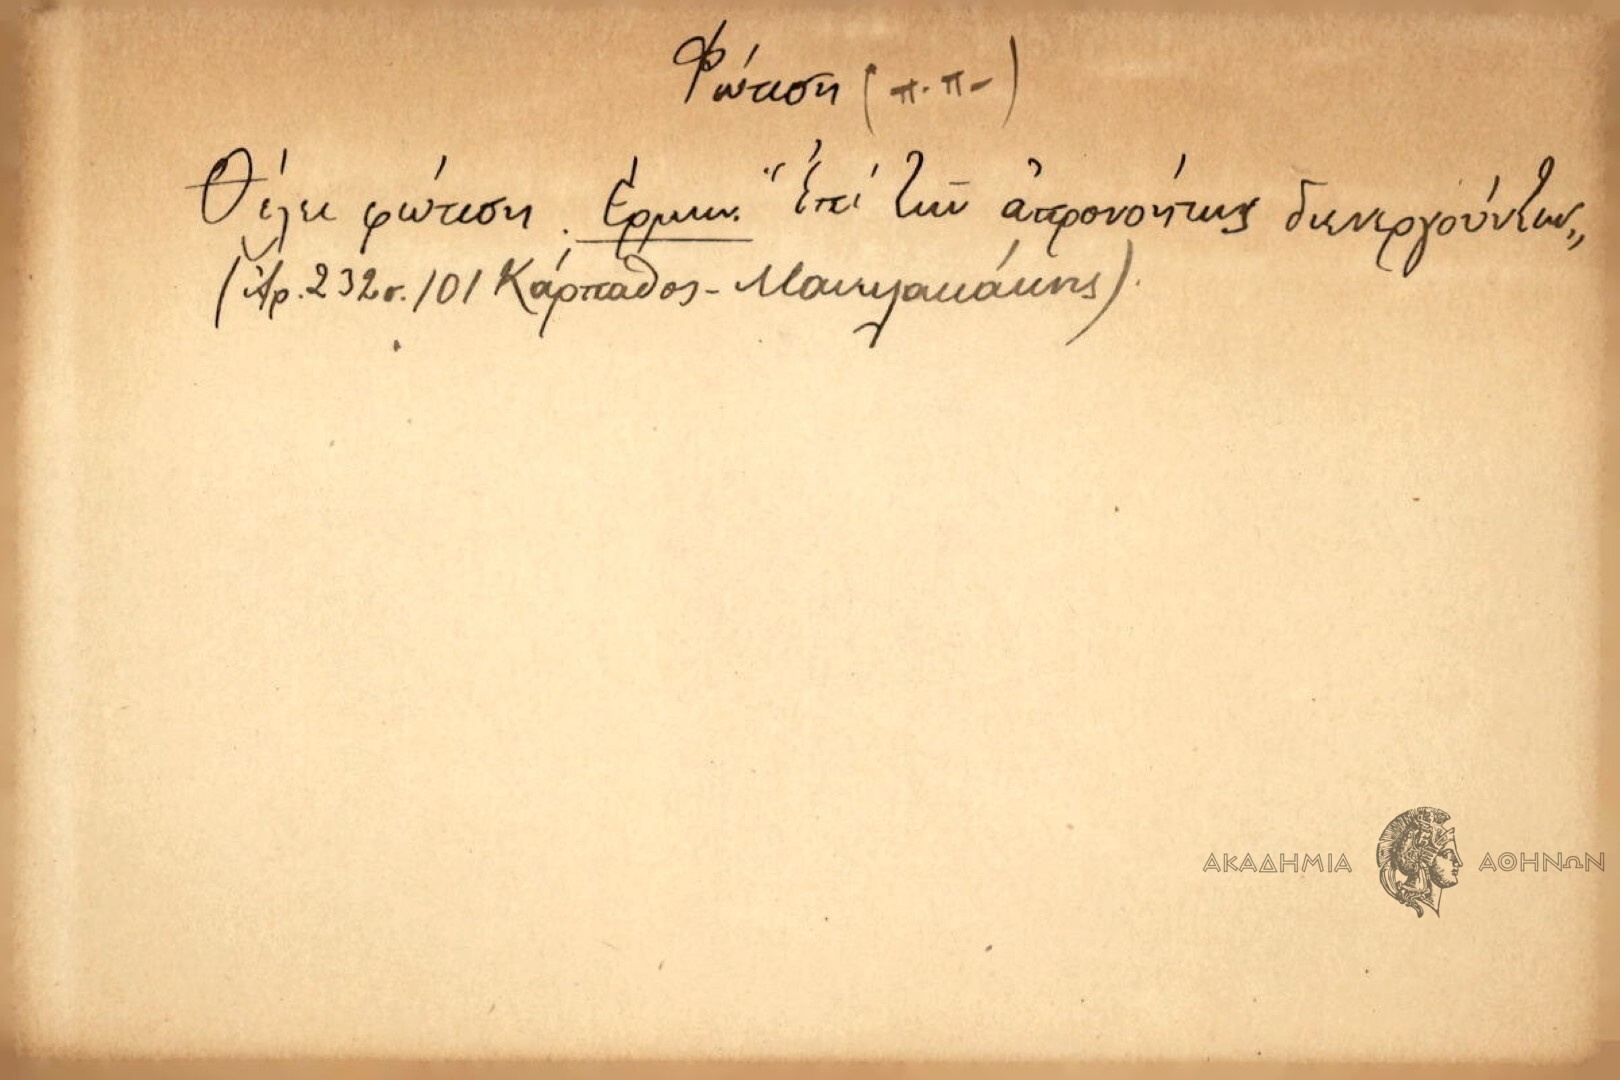 Φώτιση (π.π.)
Θέλει φώτιση. Ἑρμην. "Ἐπὶ τῶν ἀπρονοήτως διενεργούντων„
(Ἀρ. 232 σ. 101 Κάρπαθος - Μανωλακάκης).
ΑΚΑΔΗΜΙΑ ΑΘΗΝΩΝ